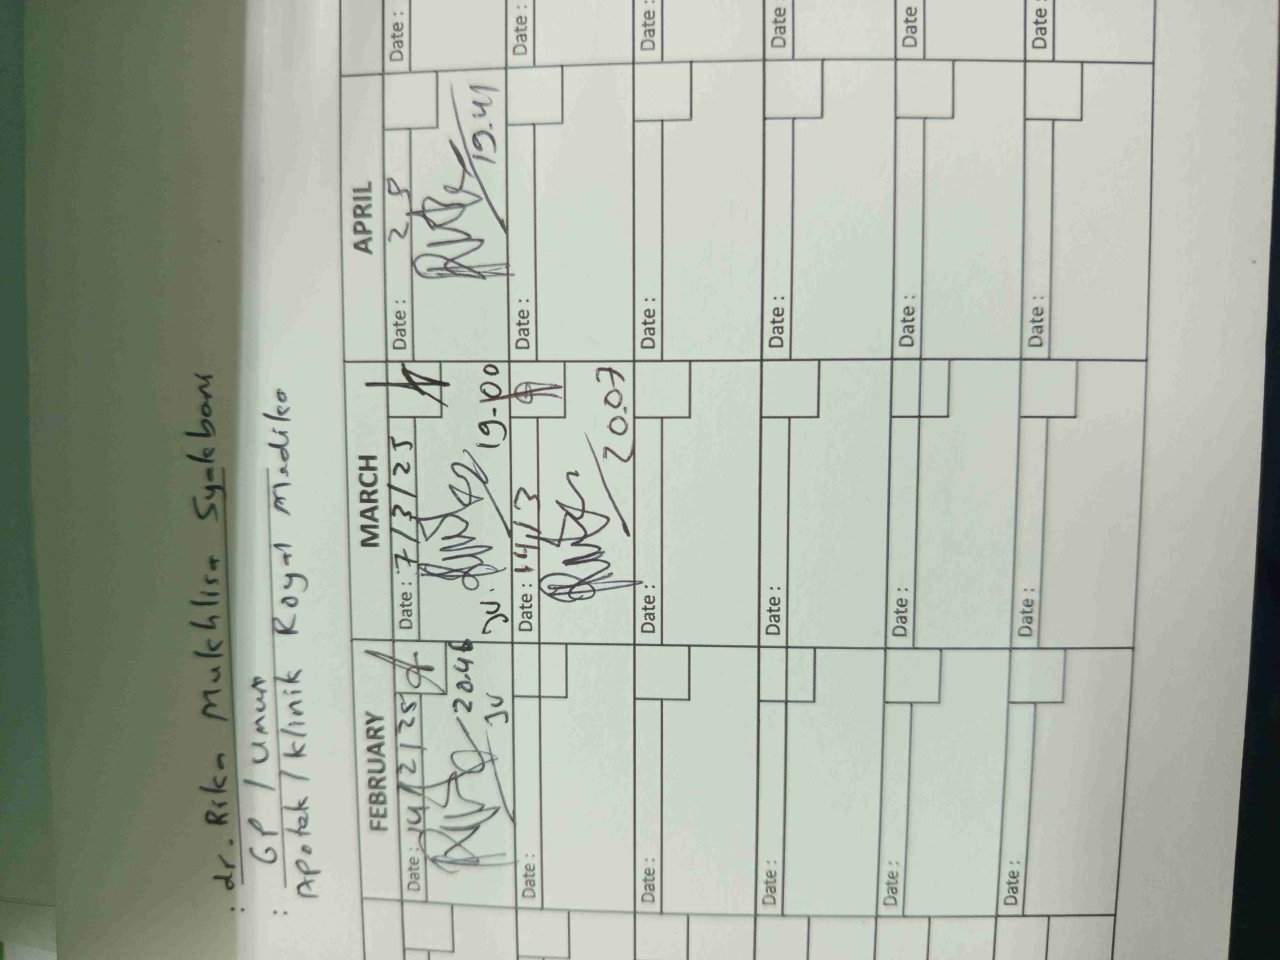 : dr. Rika Mukhlisa
GP / Umum
: Apotek / Klinik Royal Medika
FEBRUARY MARCH APRIL
Date : 14/2/25 Date : 7/3/25 Date : Date :
20.46 19.00 19.41
JV JV.
Date : Date : 14/3 Date : Date :
20.07
Date : Date : Date : Date :
Date : Date : Date : Date :
Date : Date : Date : Date
Date : Date : Date : Date :